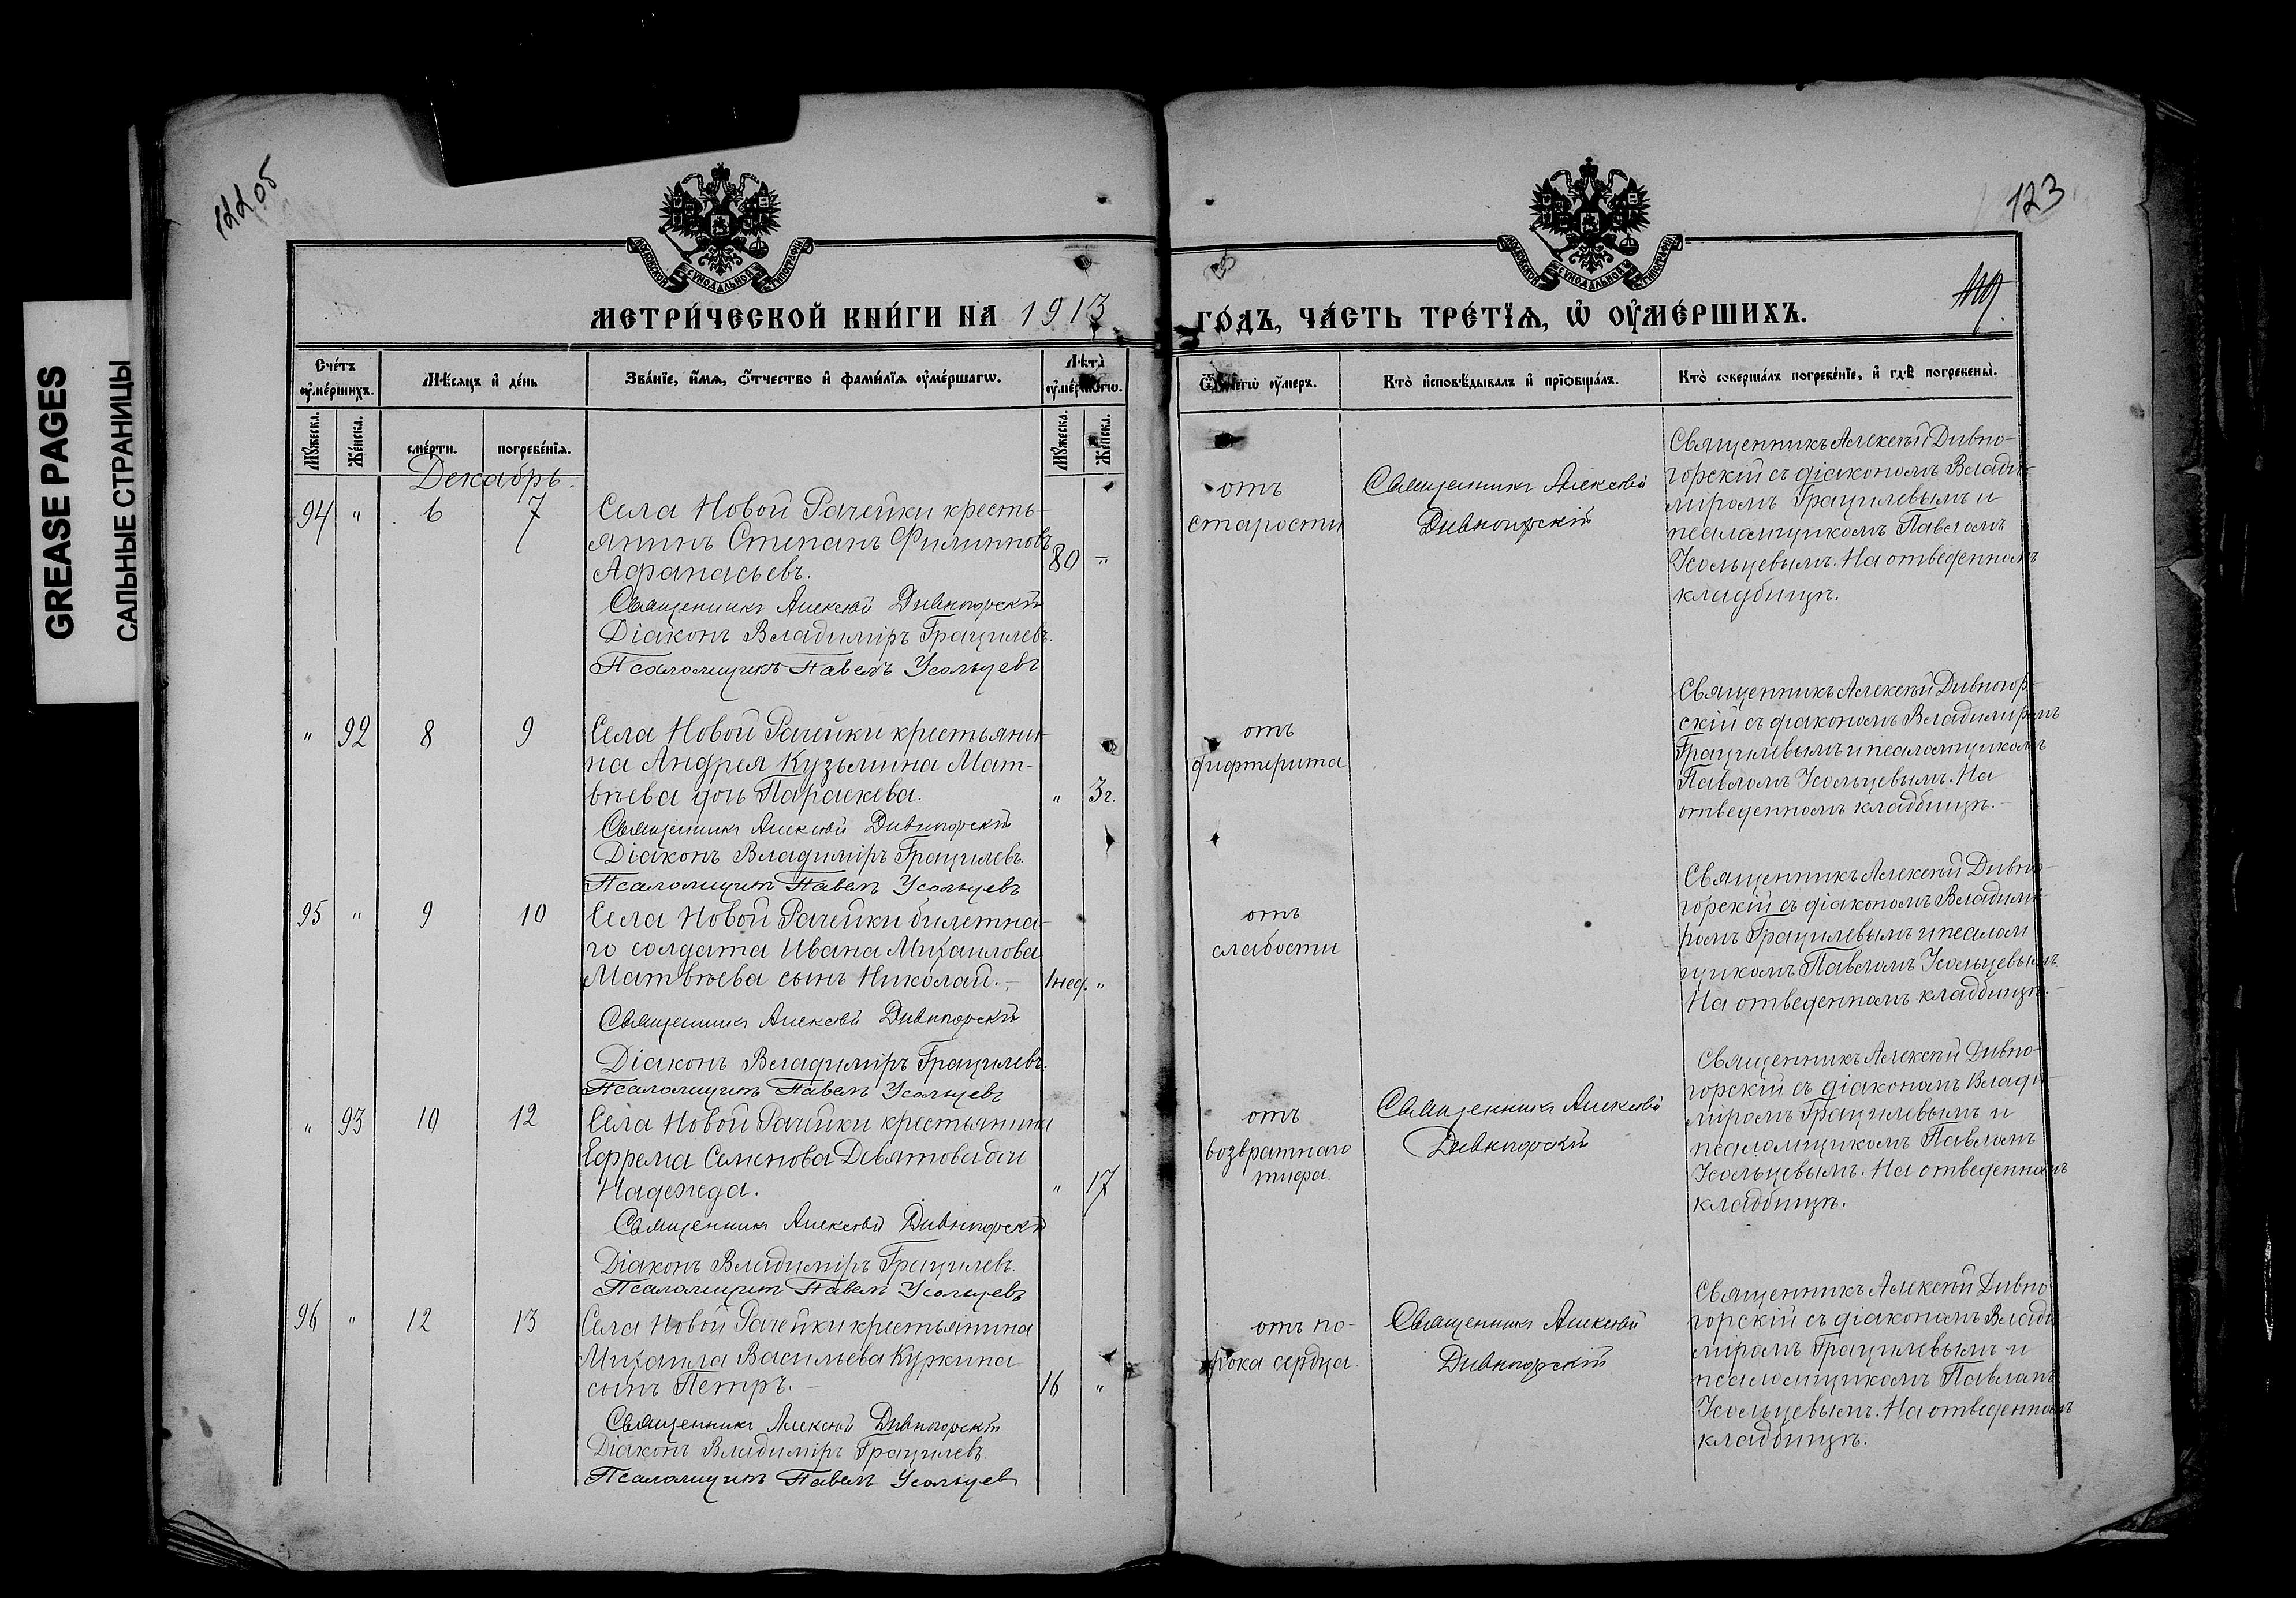 GREASE PAGES
САЛЬНЫЕ СТРАНИЦЫ
122об
123
МОСКОВСКОЙ СѴНОДАЛЬНОЙ ТИПОГРАФІИ
МОСКОВСКОЙ СѴНОДАЛЬНОЙ ТИПОГРАФІИ
МЕТРИ́ЧЕСКОЙ КНИ́ГИ НА 1913
ГО́ДЪ, ЧА́СТЬ ТРЕ́ТЇѦ, Ѡ҆ ОУ҆МЕ́РШИХЪ.
Сче́тъ оу҆ме́ршихъ.
Мѣ́сяцъ и҆ де́нь
Зва́нїе, и҆́мѧ, ѻ҆́тчество и҆ фами́лїѧ оу҆ме́ршагѡ.
Лѣта̀ оу҆ме́ршагѡ.
оу҆меръ.
Кто̀ и҆сповѣ́дывалъ и҆ прїѡбща́лъ.
Кто̀ соверша́лъ погребе́нїе, и҆ гдѣ̀ погребены̀.
Мꙋ́жеска.
Же́нска.
сме́рти.
погребе́нїѧ.
Мꙋ́жеска.
Же́нска.
Декабрь.
94 " 6 7
Села Новой Рачейки кресть-
янинъ Степанъ Филипповъ
Афанасьевъ.
80 "
Священникъ Алексѣй Дивногорскій
Діаконъ Владиміръ Грацилевъ.
Псаломщикъ Павелъ Усольцевъ
отъ
старости
Священникъ Алексѣй
Дивногорскій
Священникъ Алексѣй Дивно-
горскій съ діакономъ Влади-
міромъ Грацилевымъ и
псаломщикомъ Павломъ
Усольцевымъ. На отведенномъ
кладбищѣ.
" 92 8 9
Села Новой Рачейки крестьяни-
на Андрея Кузьмина Мат-
вѣева дочь Параскева.
" 3г.
Священникъ Алексѣй Дивногорскій
Діаконъ Владиміръ Грацилевъ.
Псаломщикъ Павелъ Усольцевъ
отъ
дифтерита
Священникъ Алексѣй Дивногор-
скій съ діакономъ Владиміромъ
Грацилевымъ и псаломщикомъ
Павломъ Усольцевымъ. На
отведенномъ кладбищѣ.-
95 " 9 10
Села Новой Рачейки билетна-
го солдата Ивана Михаилова
Матвѣева сынъ Николай.-
1 нед. "
Священникъ Алексѣй Дивногорскій
Діаконъ Владиміръ Грацилевъ.
Псаломщикъ Павелъ Усольцевъ
отъ
слабости
Священникъ Алексѣй Дивно-
горскій съ діакономъ Владимі-
ромъ Грацилевымъ и псалом
щикомъ Павломъ Усольцевымъ.
На отведенномъ кладбищѣ.-
" 93 10 12
Села Новой Рачейки крестьянина
Ефрема Семенова Девятова дочь
Надежда.
" 17
Священникъ Алексѣй Дивногорскій
Діаконъ Владиміръ Грацилевъ.
Псаломщикъ Павелъ Усольцевъ
отъ
возвратнаго
тифа.
Священникъ Алексѣй
Дивногорскій
Священникъ Алексѣй Дивно-
горскій съ діакономъ Влади-
міромъ Грацилевымъ и
псаломщикомъ Павломъ
Усольцевымъ. На отведенномъ
кладбищѣ.
96 " 12 13
Села Новой Рачейки крестьянина
Михаила Васильева Куркина
сынъ Петръ.-
16 "
Священникъ Алексѣй Дивногорскій
Діаконъ Владиміръ Грацилевъ.
Псаломщикъ Павелъ Усольцевъ
отъ по-
рока сердца
Священникъ Алексѣй
Дивногорскій
Священникъ Алексѣй Дивно-
горскій съ діакономъ Влади-
міромъ Грацилевымъ и
псаломщикомъ Павломъ
Усольцевымъ. На отведенномъ
кладбищѣ.